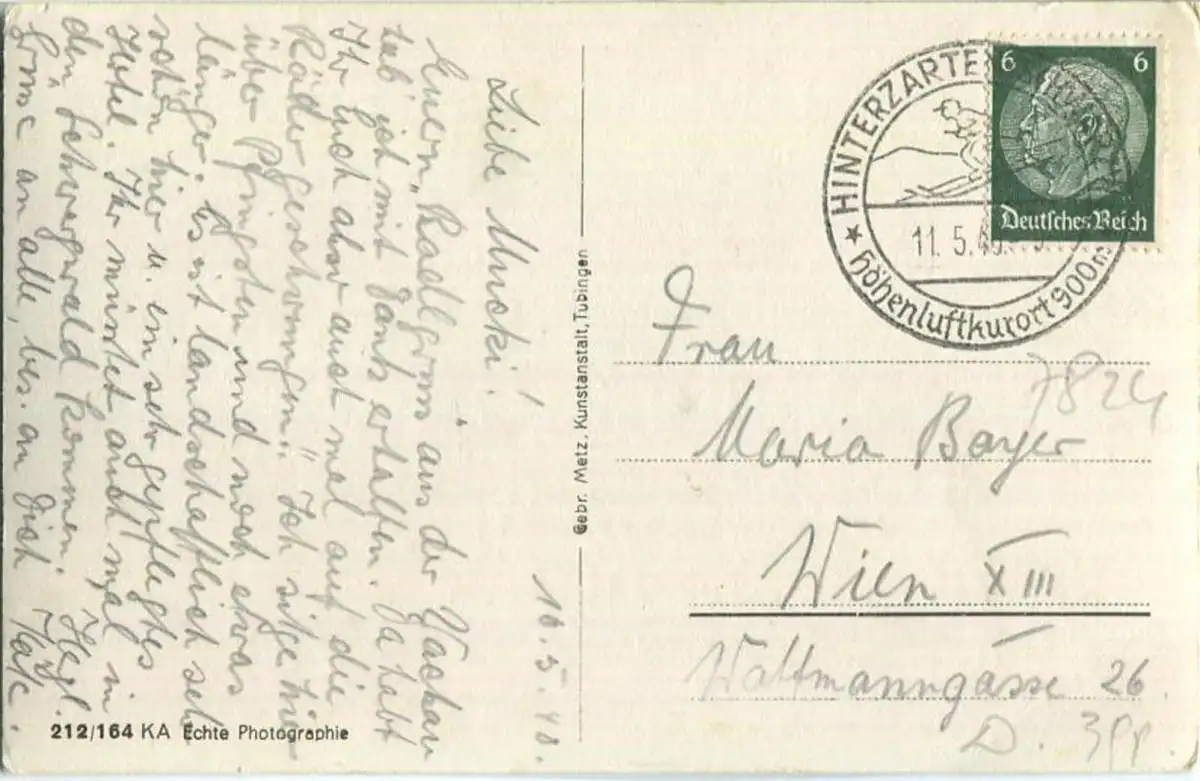 16.5.40.
Liebe Mucki!
Euern „Radlgruss" aus der Wachau
hab' ich mit Dank erhalten. Da habt
Ihr Euch aber auch mal auf die
Räder geschwungen!! Ich sitze hier
über Pfingsten und noch etwas
länger. Es ist landschaftlich sehr
schön hier u. ein sehr gepflegtes
Hotel. Ihr müsstet auch mal in
den Schwarzwald kommen! Herzl.
Grüsse an alle, bes. an Dich
212/164 KA Echte Photographie
Gebr. Metz, Kunstanstalt, Tübingen
HINTERZARTEN
11.5.40
Höhenluftkurort 900m
6 6
Deutsches Reich
Frau
Maria Bayer
7824
Wien XIII
Wattmanngasse 26
D.